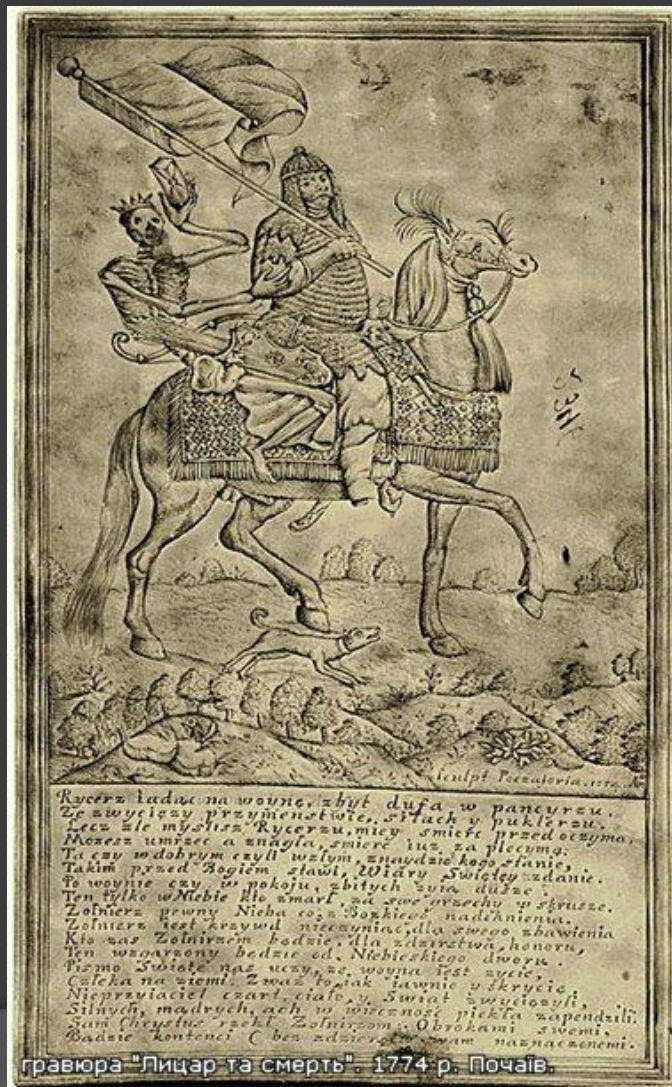 sculpt Poczaioria. 1774
Rycerz iadąc na woynę, zbyt dufa w pancyrzu.
Ze zwycięzy przymenstwie, siłach y puklerzu.
Lecz zle myslisz Rycerzu, miey smierc przed oczyma,
Mozesz umrzec a znagła, smierc iuz za plecyma;
Ta czy w dobrym czyli w złym, znaydzie kogo stanie,
Takim przed Bogiem stawi, Wiary Swiętey zdanie.
Po woynie czy w pokoju, zbitych dusze
Ten tylko w Niebie kto zmarł, za swe grzechy w skrusze.
Zołnierz pewny Nieba co z Bozkiego nadchnienia.
Zołnierz iest krzywd nieczyniąc, dla swego zbawienia
Kto zas Zołnirzem bedzie, dla zdzirstwa, honoru,
Ten wzgarzony bedzie od Niebieskiego dworu.
Pismo Swięte nas uczy, ze woyna iest zycie,
Człeka na ziemi. Zwaz to, iak iawnie y skrycie,
Nieprzyiaciel czart, ciało, y Swiat zwyciozyli,
Silnych, mądrych, ach w wiecznosc piekła zapendzili.
Sam Chrystus rzekł Zołnirzom: Obrokami swemi,
Bądzie kontenci (bez wam naznaczonemi.
гравюра "Лицар та смерть". 1774 р. Почаїв.